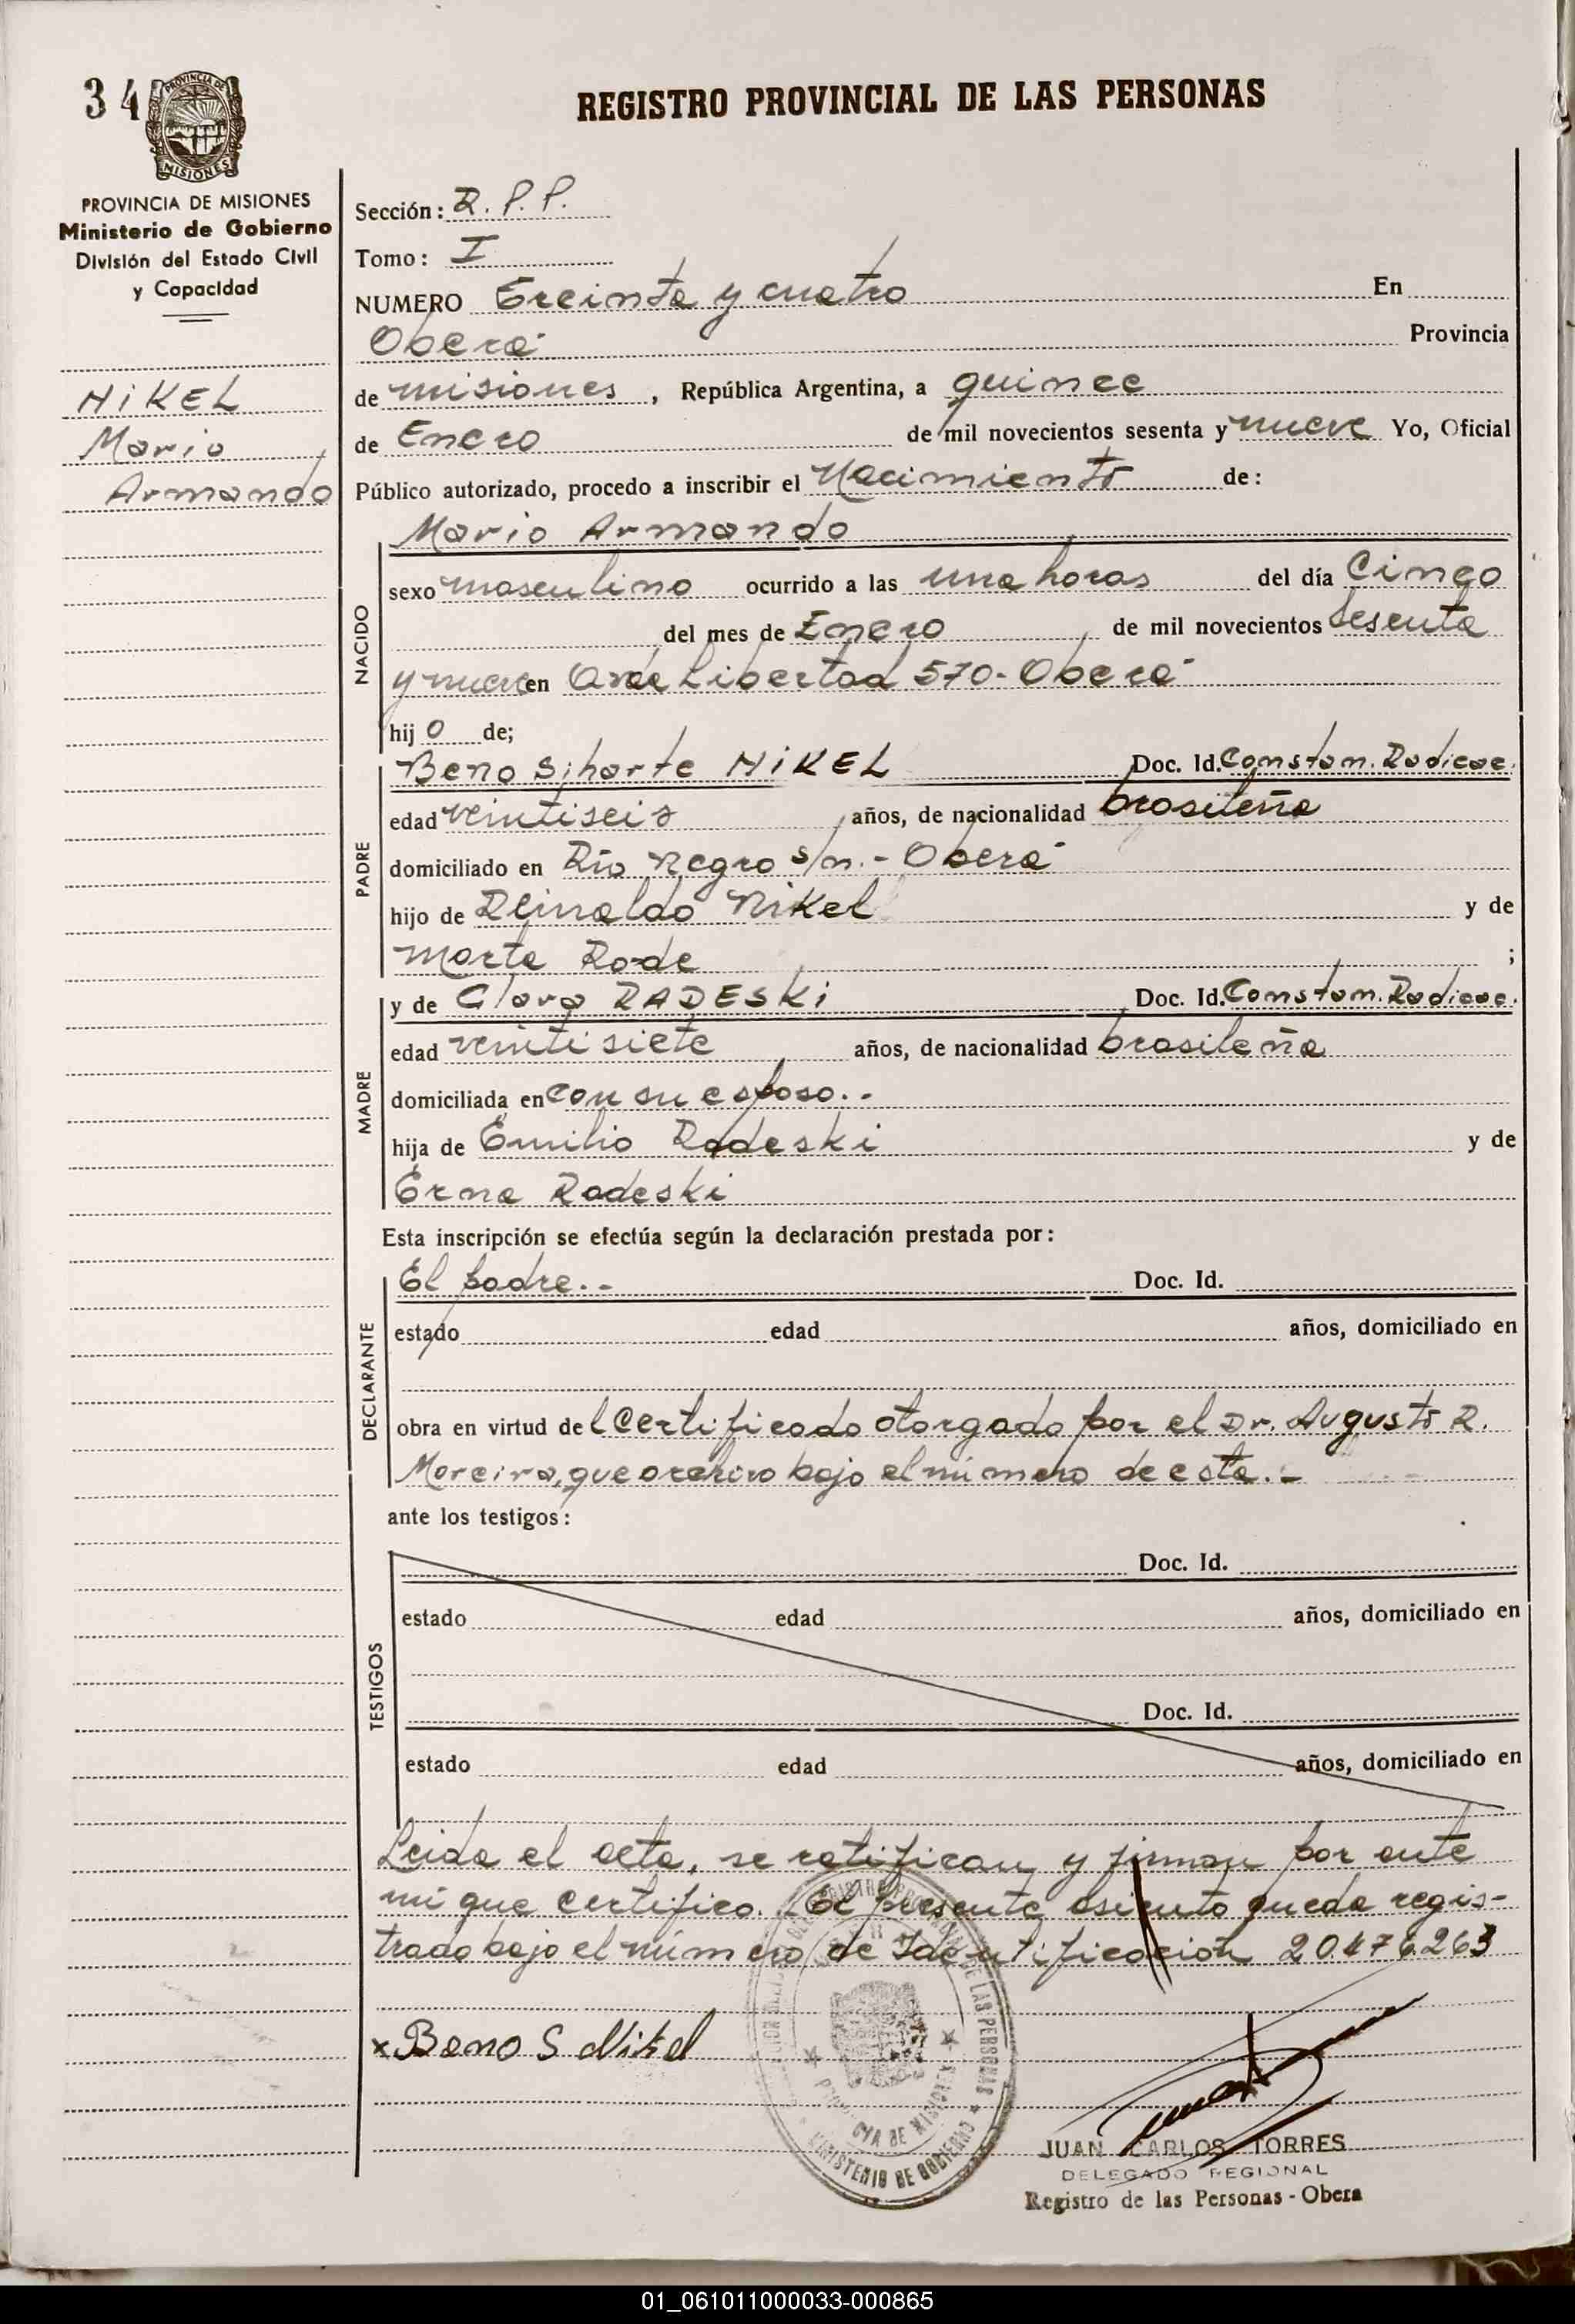 34
PROVINCIA DE
MISIONES
REGISTRO PROVINCIAL DE LAS PERSONAS
PROVINCIA DE MISIONES
Ministerio de Gobierno
División del Estado Civil
y Capacidad
NIKEL
Mario
Armando
Sección: R. P. P.
Tomo: I
NUMERO Treinta y cuatro En
Oberá
Provincia
de misiones, República Argentina, a quince
de Enero de mil novecientos sesenta y nueve Yo, Oficial
Público autorizado, procedo a inscribir el Nacimiento de:
Mario Armando
NACIDO
sexo masculino ocurrido a las una horas del día Cinco
del mes de Enero de mil novecientos sesenta
y nueve en Avda Libertad 570- Oberá
hijo de;
PADRE
Beno Siharte NIKEL Doc. Id. Constan. Radicac.
edad veintiseis años, de nacionalidad brasileña
domiciliado en Río Negro s/n.- Oberá
hijo de Reinaldo Nikel y de
Marta Rode ;
MADRE
y de Clara RADESKi Doc. Id. Constan. Radicac.
edad veintisiete años, de nacionalidad brasileña
domiciliada en con su esposo.-
hija de Emilio Radeski y de
Erna Radeski
Esta inscripción se efectúa según la declaración prestada por:
DECLARANTE
El padre.- Doc. Id.
estado edad años, domiciliado en
obra en virtud del Certificado otorgado por el Dr. Augusto R.
Moreira, que archivo bajo el número de esta.-
ante los testigos:
TESTIGOS
Doc. Id.
estado edad años, domiciliado en
Doc. Id.
estado edad años, domiciliado en
Leida el acta, se ratifican y firman por ante
mi que certifico. El presente asiento queda regis-
trado bajo el número de Identificación 20.476.263
x Beno S Nikel
DE LAS PERSONAS
MINISTERIO DE GOBIERNO
JUAN CARLOS TORRES
DELEGADO REGIONAL
Registro de las Personas - Obera
01_061011000033-000865